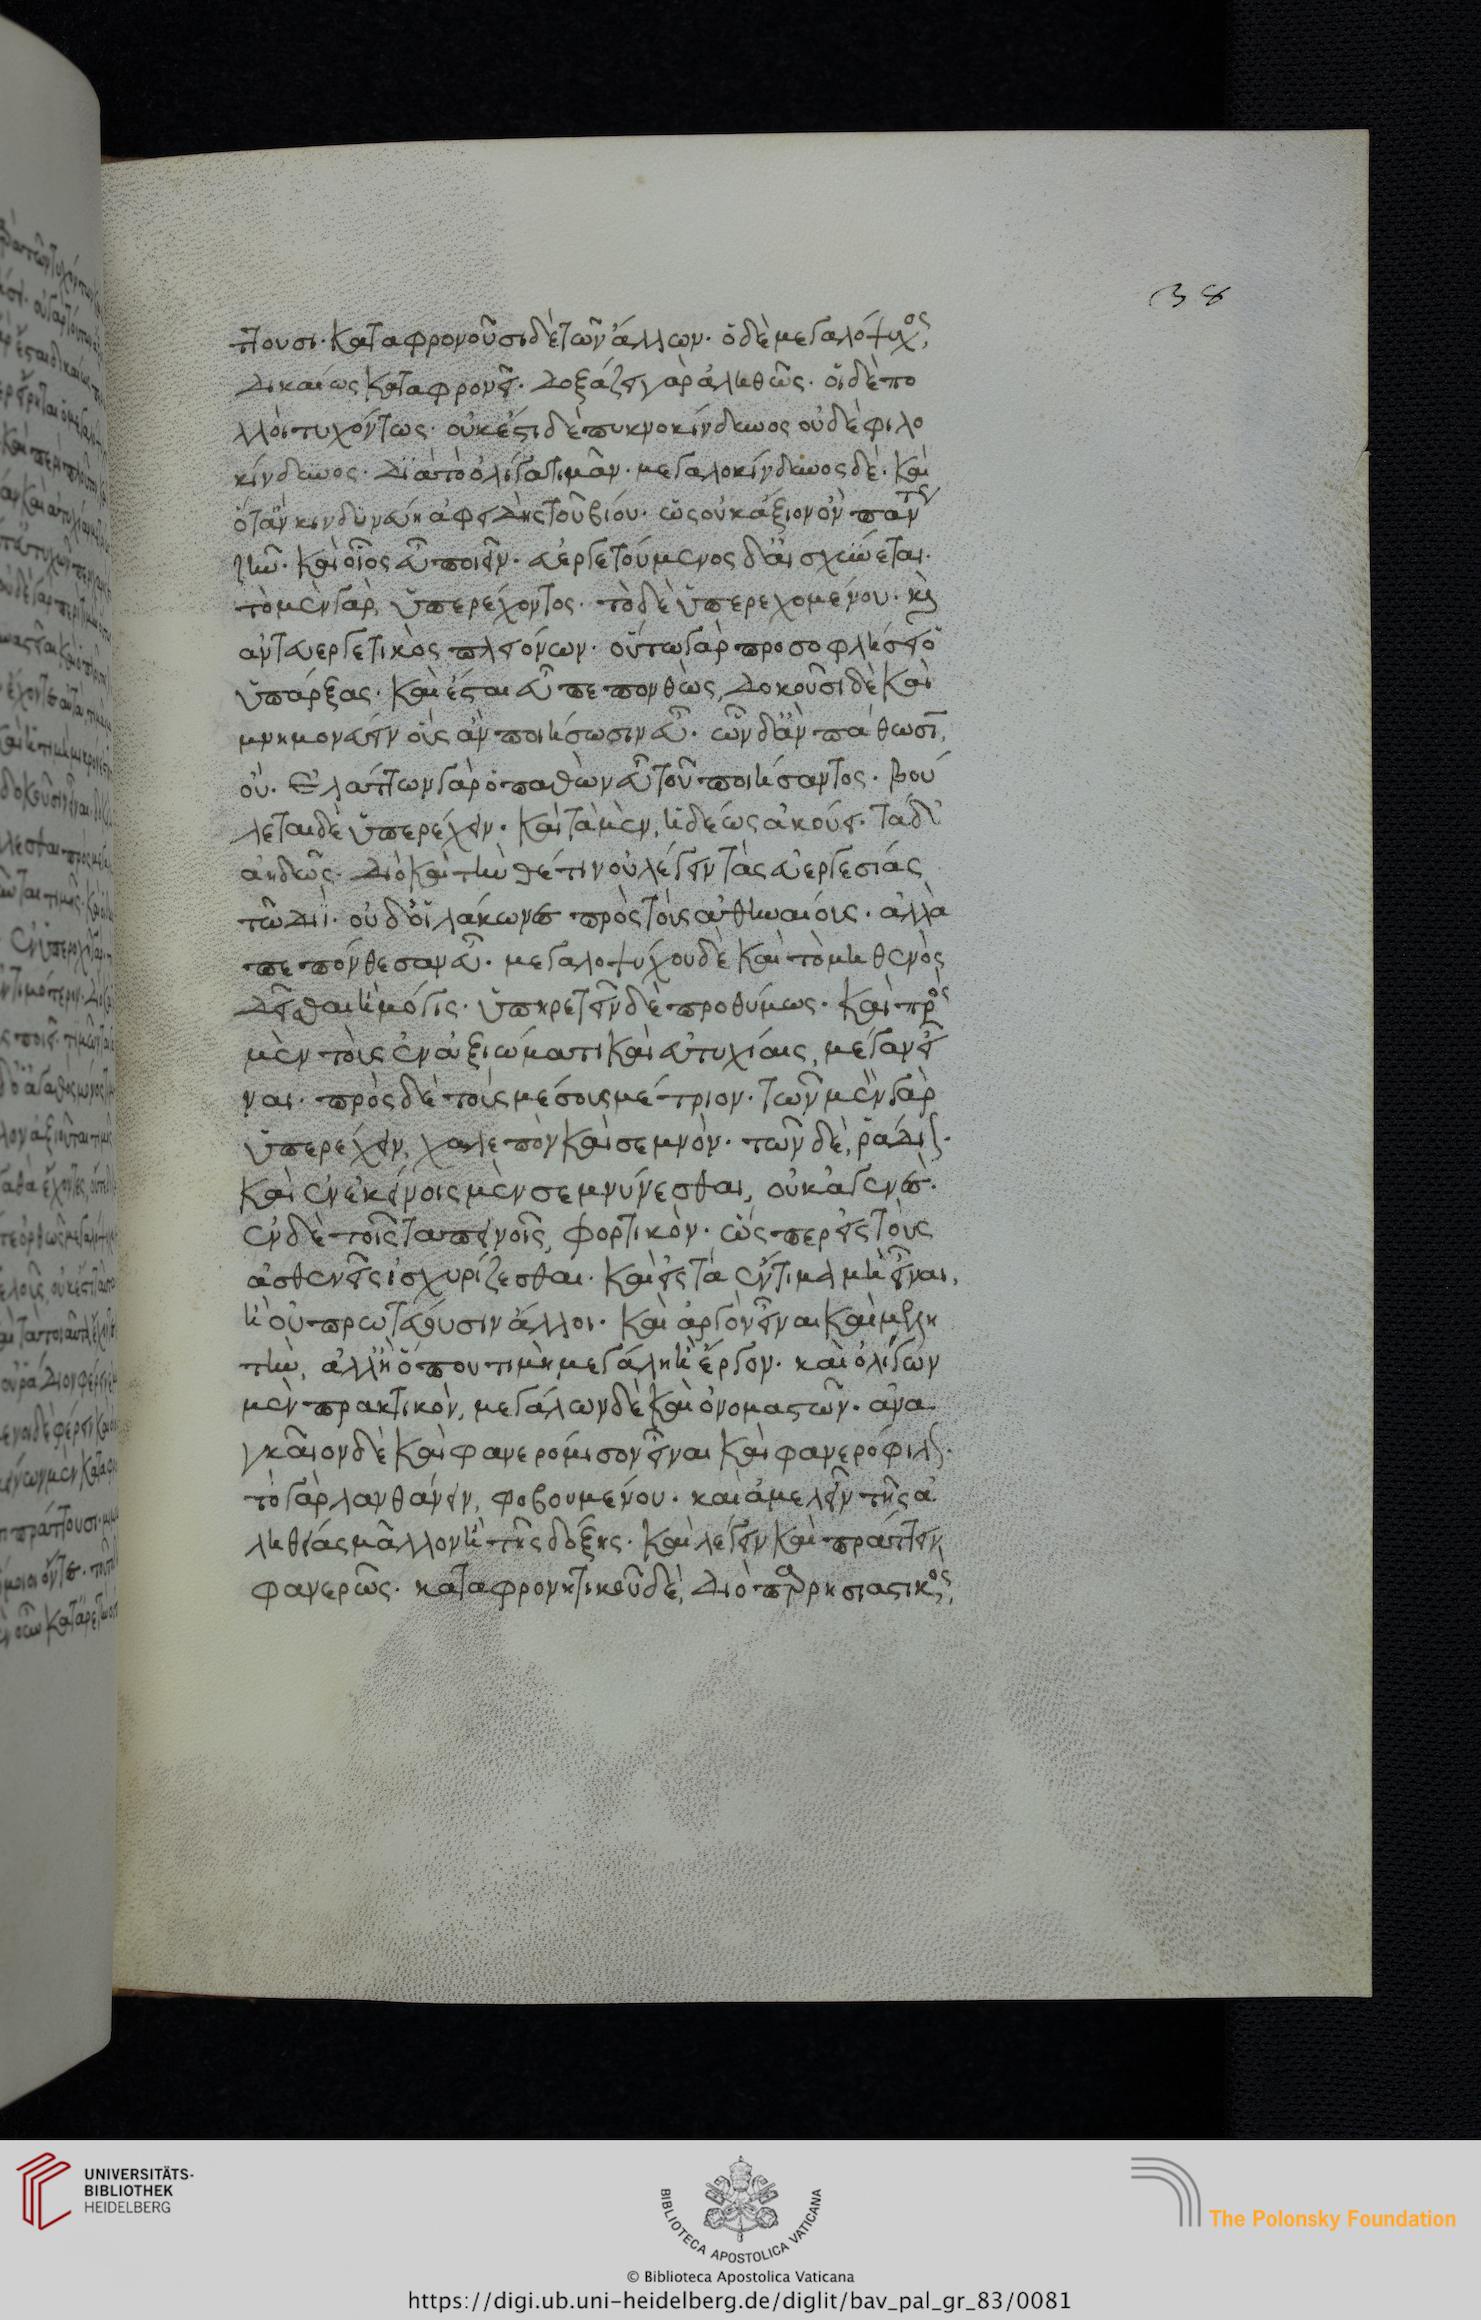 38
πτουσι· καταφρονοῦσι δὲ τῶν ἄλλων· ὁ δὲ μεγαλόψυχος,
δικαίως καταφρονεῖ· δοξάζει γὰρ ἀληθῶς· οἱ δὲ πο
λλοὶ τυχόντως· οὐκ ἔστι δὲ πυκνοκίνδυνος οὐδὲ φιλο
κίνδυνος· διὰ τὸ ὀλίγα τιμᾶν· μεγαλοκίνδυνος δὲ· καὶ
ὅταν κινδυνεύῃ ἀφειδὴς τοῦ βίου· ὡς οὐκ ἄξιον ὂν παντως
ζῆν· καὶ οἷος εὖ ποιεῖν· εὐεργετούμενος δ' αἰσχύνεται·
τὸ μὲν γὰρ, ὑπερέχοντος· τὸ δὲ ὑπερεχομένου· καὶ
ἀντευεργετικὸς πλειόνων· οὕτω γὰρ προσοφλήσει ὁ
ὑπάρξας· καὶ ἔσται εὖ πεπονθὼς, δοκοῦσι δὲ καὶ
μνημονεύειν οὓς ἂν ποιήσωσιν εὖ· ὧν δ' ἂν πάθωσιν,
οὐ· ἐλάττων γὰρ ὁ παθὼν εὖ τοῦ ποιήσαντος· βού
λεται δὲ ὑπερέχειν· καὶ τὰ μὲν, ἡδέως ἀκούει· τὰ δ'
ἀηδῶς· διὸ καὶ τὴν θέτιν οὐ λέγειν τὰς εὐεργεσίας
τῶ διΐ· οὐδ' οἱ λάκωνες πρὸς τοὺς ἀθηναίους· ἀλλὰ
πεπόνθεσαν εὖ· μεγαλοψύχου δὲ καὶ τὸ μηθενὸς
δεῖσθαι ἢ μόγις· ὑπηρετεῖν δὲ προθύμως· καὶ πρὸς
μὲν τοὺς ἐν ἀξιώματι καὶ εὐτυχίαις, μέγαν εἶ
ναι· πρὸς δὲ τοὺς μέσους μέτριον· τῶν μὲν γὰρ
ὑπερέχειν, χαλεπὸν καὶ σεμνὸν· τῶν δὲ, ῥάδιον·
καὶ ἐν ἐκείνοις μὲν σεμνύνεσθαι, οὐκ ἀγενὲς·
ἐν δὲ τοῖς ταπεινοῖς, φορτικὸν· ὥσπερ εἰς τοὺς
ἀσθενεῖς ἰσχυρίζεσθαι· καὶ εἰς τὰ ἔντιμα μὴ εἶναι,
ἢ οὗ πρωτεύουσιν ἄλλοι· καὶ ἀργὸν εἶναι καὶ μελλη
τὴν, ἀλλ' ἢ ὅπου τιμὴ μεγάλη ἢ ἔργον· καὶ ὀλίγων
μὲν πρακτικὸν, μεγάλων δὲ καὶ ὀνομαστῶν· ἀνα
γκαῖον δὲ καὶ φανερόμισον εἶναι καὶ φανερόφιλον·
τὸ γὰρ λανθάνειν, φοβουμένου· καὶ ἀμελεῖν τῆς ἀ
ληθείας μᾶλλον ἢ τῆς δόξης· καὶ λέγειν καὶ πράττειν
φανερῶς· καταφρονητικοῦ δὲ, διὸ παρρησιαστικὸς,
UNIVERSITÄTS-
BIBLIOTHEK
HEIDELBERG
BIBLIOTECA APOSTOLICA VATICANA
The Polonsky Foundation
© Biblioteca Apostolica Vaticana
https://digi.ub.uni-heidelberg.de/diglit/bav_pal_gr_83/0081